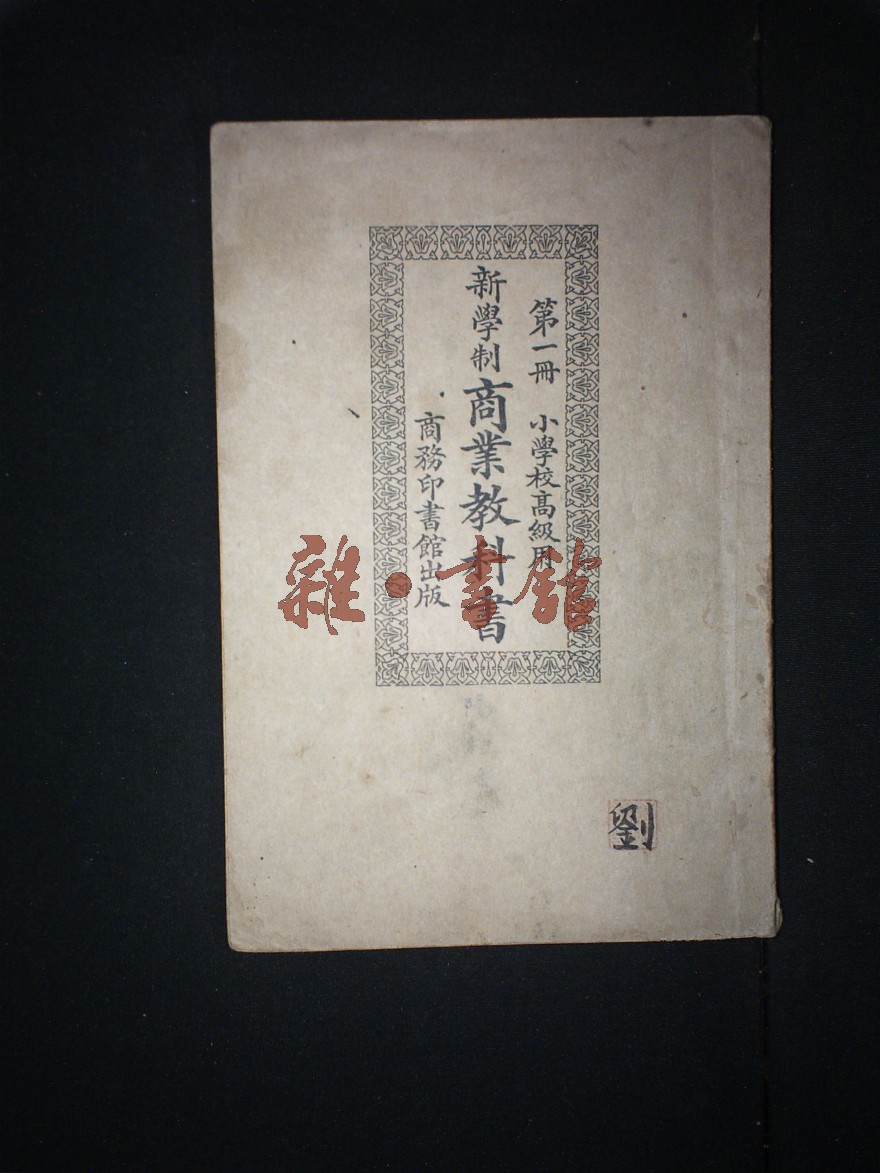 第一冊 小學校高級用
新學制商業教科書
商務印書館出版
雜·書館
劉